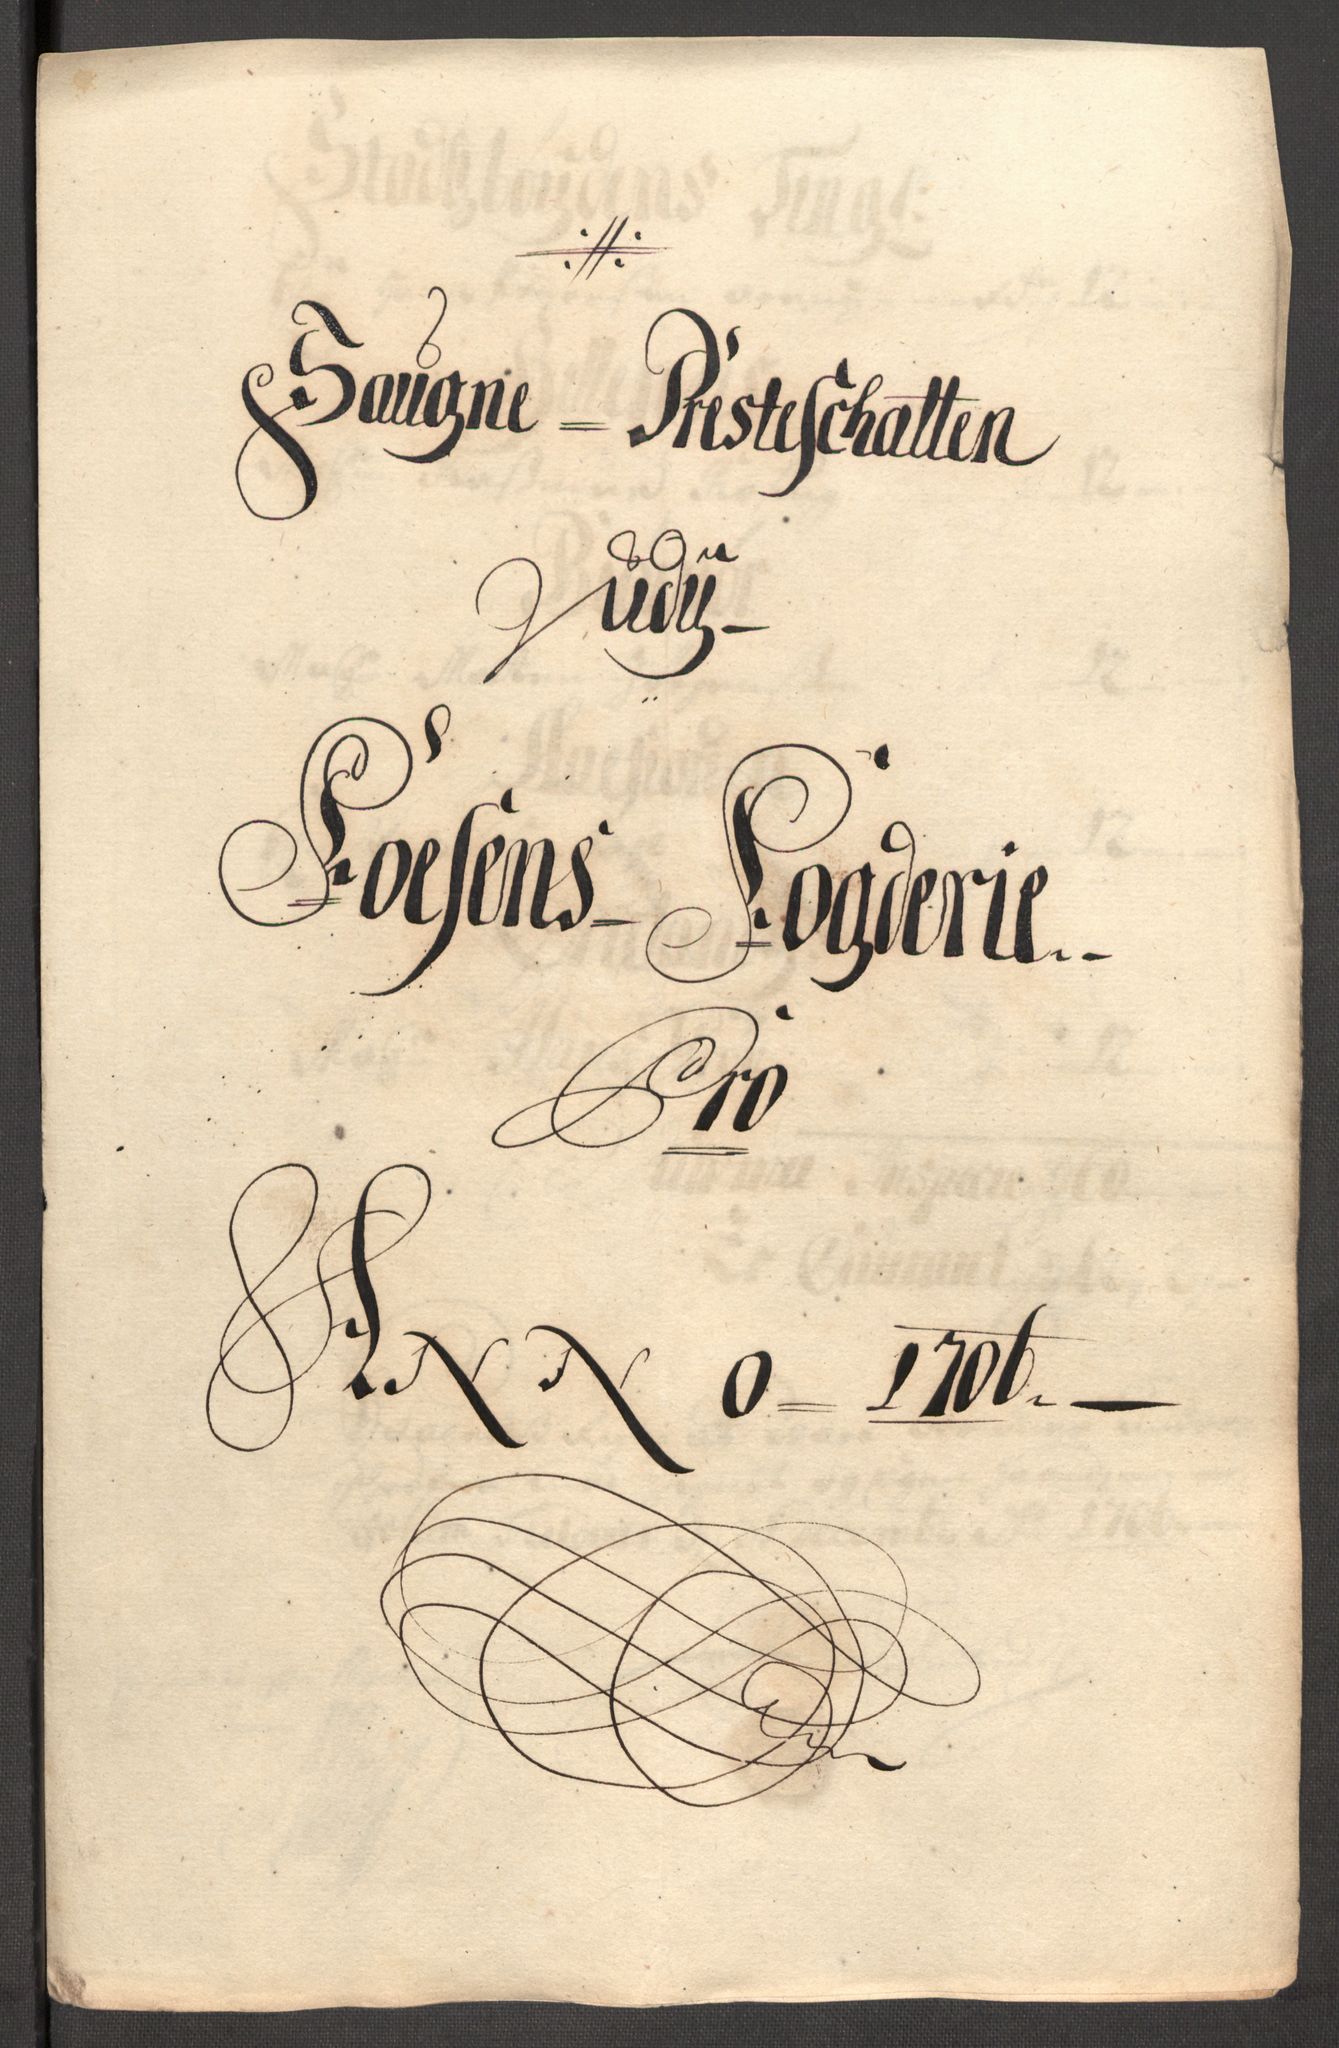 Saugne - Presteschatten
Udÿ
Foesens Fogderie
Pro
ANNO 1706